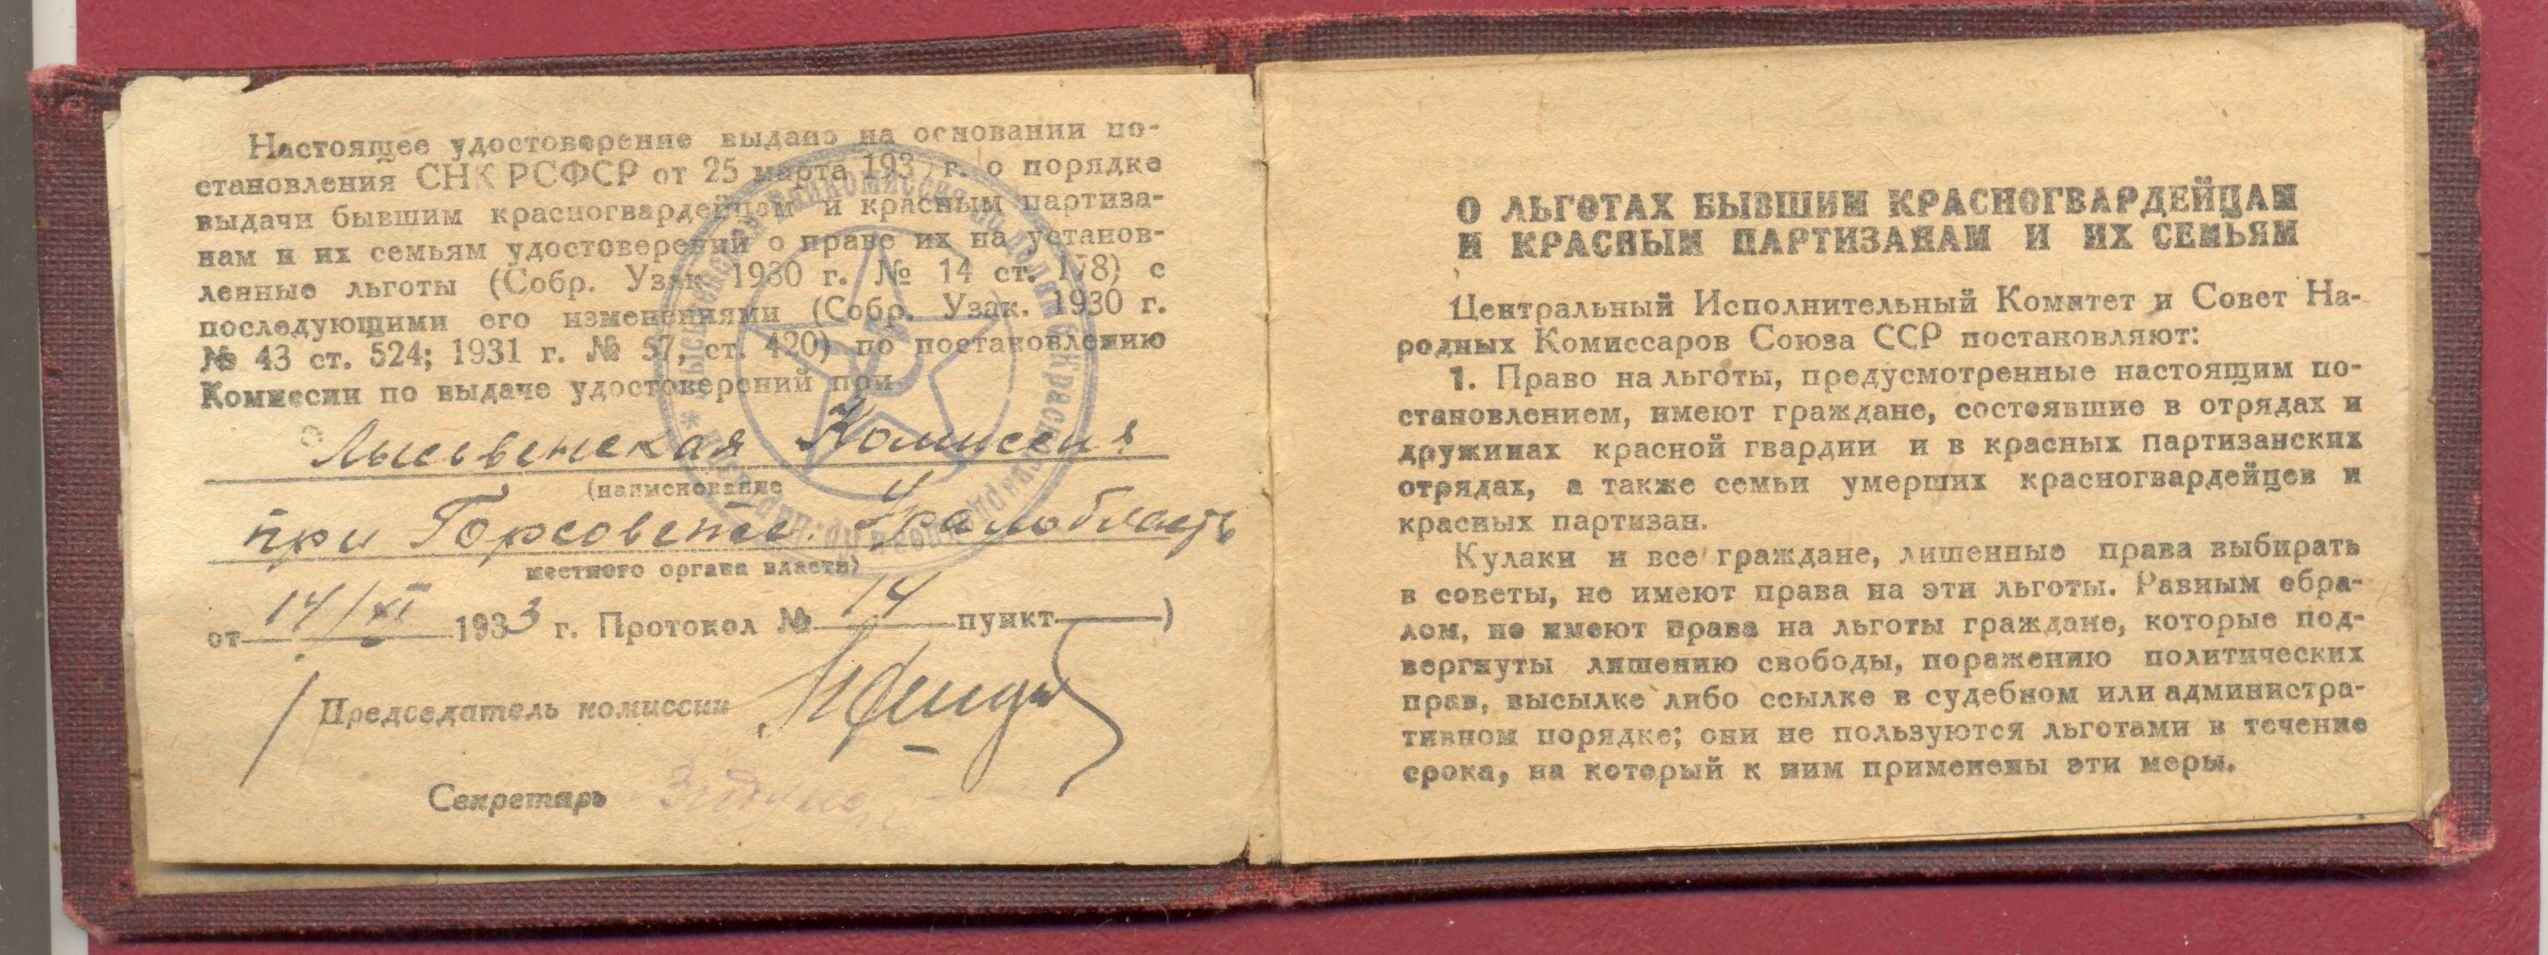 Настоящее удостоверение выдано на основании по-
становления СНК РСФСР от 25 марта 193 г. о порядке
выдачи бывшим красногвардейцам и красным партиза-
нам и их семьям удостоверений о праве их на установ-
ленные льготы (Собр. Узак. 1930 г. № 14 ст. 178) с
последующими его изменениями (Собр. Узак. 1930 г.
№ 43 ст. 524; 1931 г. № 57, ст. 420) по постановлению
Комиссии по выдаче удостоверений при
Лысьвенская Комиссия
(наименование
при Горсовете. Уралобласть
местного органа власти)
от 14/XI 1933 г. Протокол № 14 пункт )
Председатель комиссии
Секретарь
О ЛЬГОТАХ БЫВШИМ КРАСНОГВАРДЕЙЦАМ
И КРАСНЫМ ПАРТИЗАНАМ И ИХ СЕМЬЯМ
Центральный Исполнительный Комитет и Совет На-
родных Комиссаров Союза ССР постановляют:
1. Право на льготы, предусмотренные настоящим по-
становлением, имеют граждане, состоявшие в отрядах и
дружинах красной гвардии и в красных партизанских
отрядах, а также семьи умерших красногвардейцев и
красных партизан.
Кулаки и все граждане, лишенные права выбирать
в советы, не имеют права на эти льготы. Равным обра-
лом, не имеют права на льготы граждане, которые под-
вергнуты лишению свободы, поражению политических
прав, высылке либо ссылке в судебном или администра-
тивном порядке; они не пользуются льготами в течение
срока, на который к ним применены эти меры.